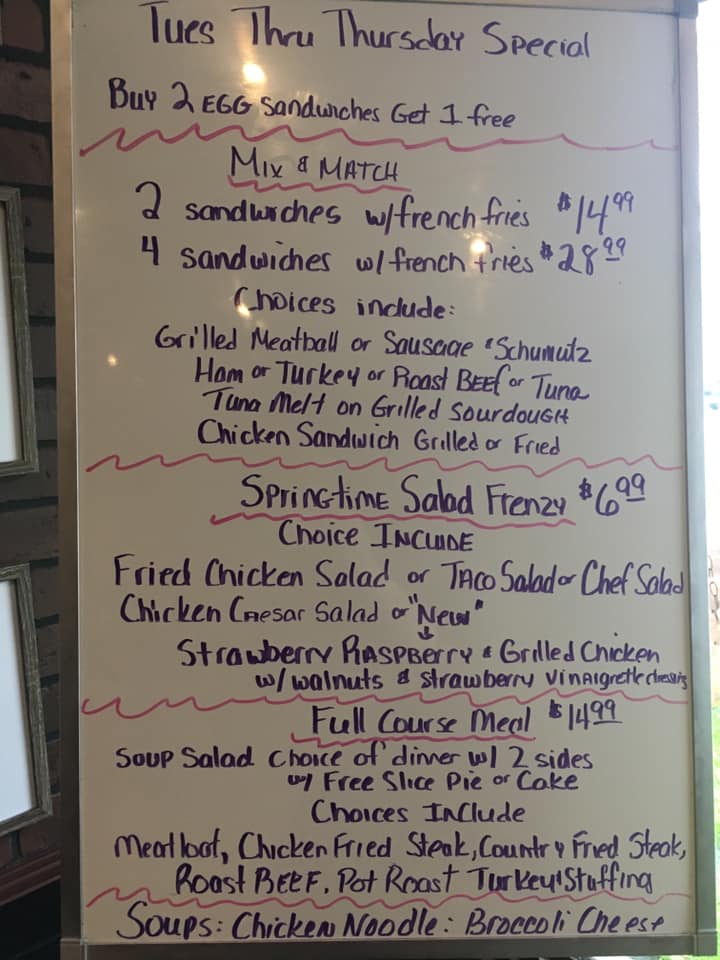 Tues Thru Thursday Special
Buy 2 EGG Sandwiches Get 1 free
Mix & MATCH
2 sandwiches w/french fries $14.99
4 sandwiches w/french fries $28.99
Choices include:
Grilled Meatball or Sausage & Schumutz
Ham or Turkey or Roast BEEF or Tuna
Tuna Melt on Grilled SourdouGH
Chicken Sandwich Grilled or Fried
SPringtimE Salad Frenzy $6.99
Choice INCLUDE
Fried Chicken Salad or TACO Salad or Chef Salad
Chicken Caesar Salad or "New"
Strawberry RASPBERRY & Grilled Chicken
w/ walnuts & strawberry vinaigrette dressing
Full Course Meal $14.99
Soup Salad Choice of dinner w/ 2 sides
w/ Free Slice Pie or Cake
Choices InClude
Meatloaf, Chicken Fried Steak, Country Fried Steak,
Roast BEEF, Pot Roast Turkey & Stuffing
Soups: Chicken Noodle: Broccoli Cheese